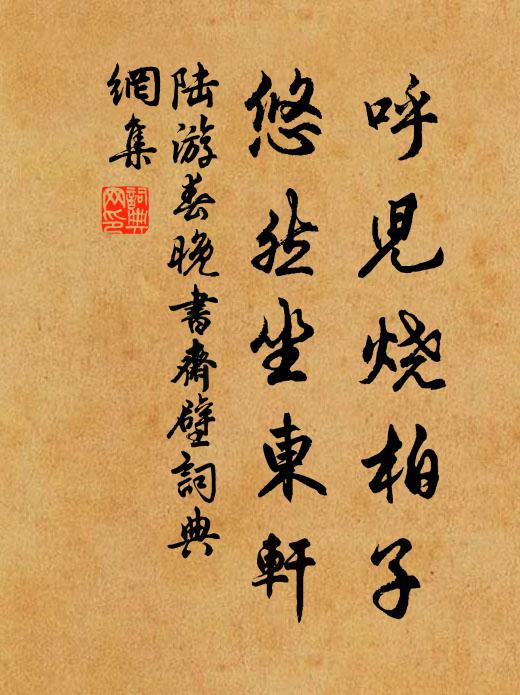 呼児烧柏子
悠然坐東軒
陆游春晚書齋壁詞典
網集
詞典
网印